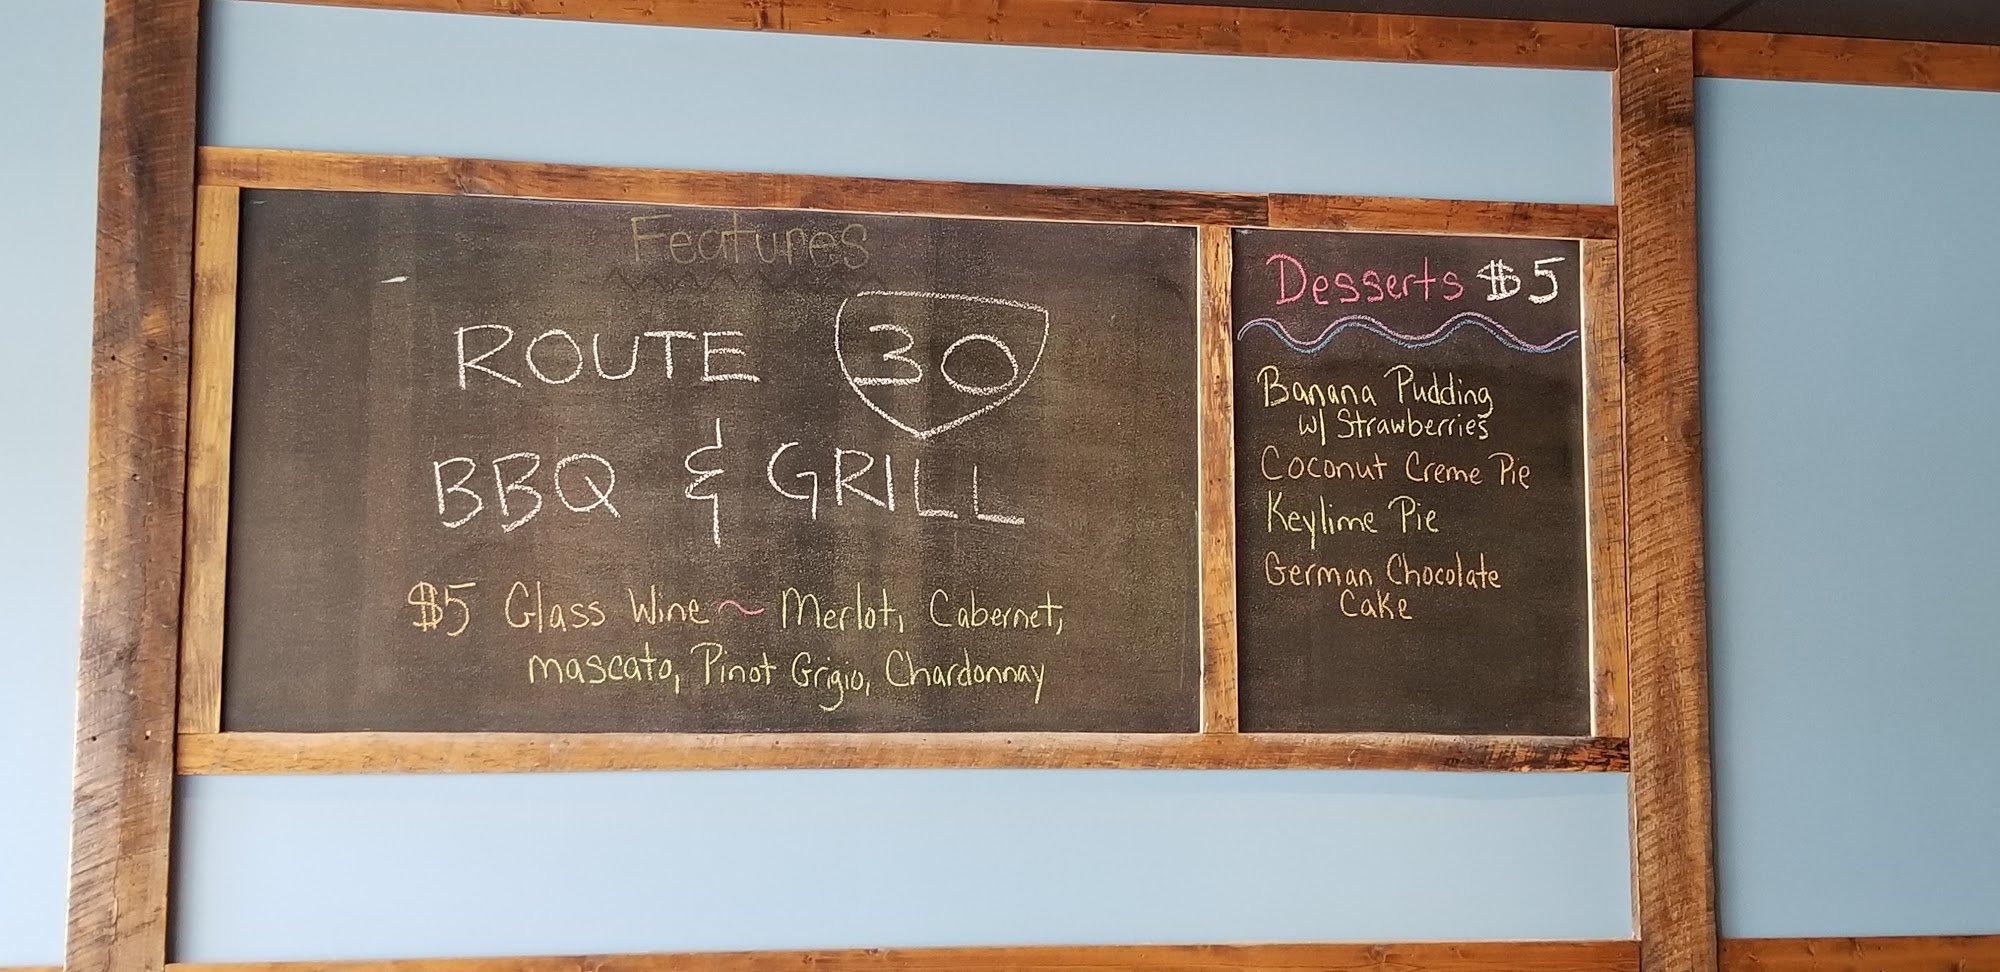 Features
ROUTE 30
BBQ & GRILL
$5 Glass Wine ~ Merlot, Cabernet,
mascato, Pinot Grigio, Chardonnay
Desserts $5
Banana Pudding
w/ Strawberries
Coconut Creme Pie
Keylime Pie
German Chocolate
Cake